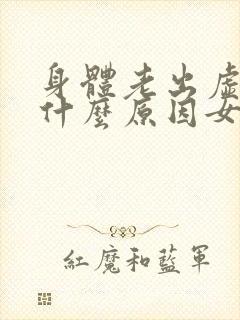 身體老出虛
什麼原因女
紅魔和藍軍